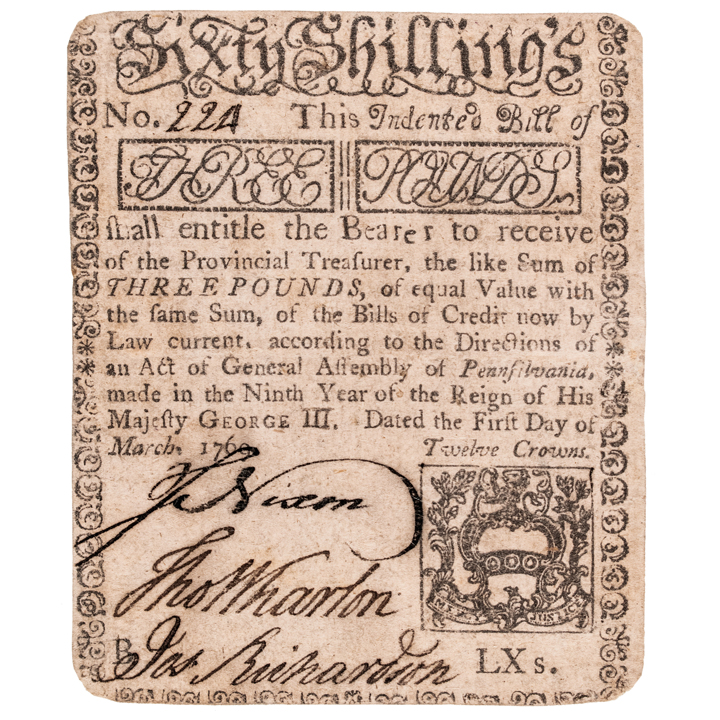 Sixty Shilling's
No. 224 This Indented Bill of
THREE POUNDS
ſhall entitle the Bearer to receive
of the Provincial Treaſurer, the like Sum of
THREE POUNDS, of equal Value with
the ſame Sum, of the Bills of Credit now by
Law current, according to the Directions of
an Act of General Aſſembly of Pennſilvania,
made in the Ninth Year of the Reign of His
Majeſty GEORGE III. Dated the Firſt Day of
March, 1769 Twelve Crowns.
Jn Nixon
Tho Wharton
MERCY JUSTICE
B Jos Richardson LX s.